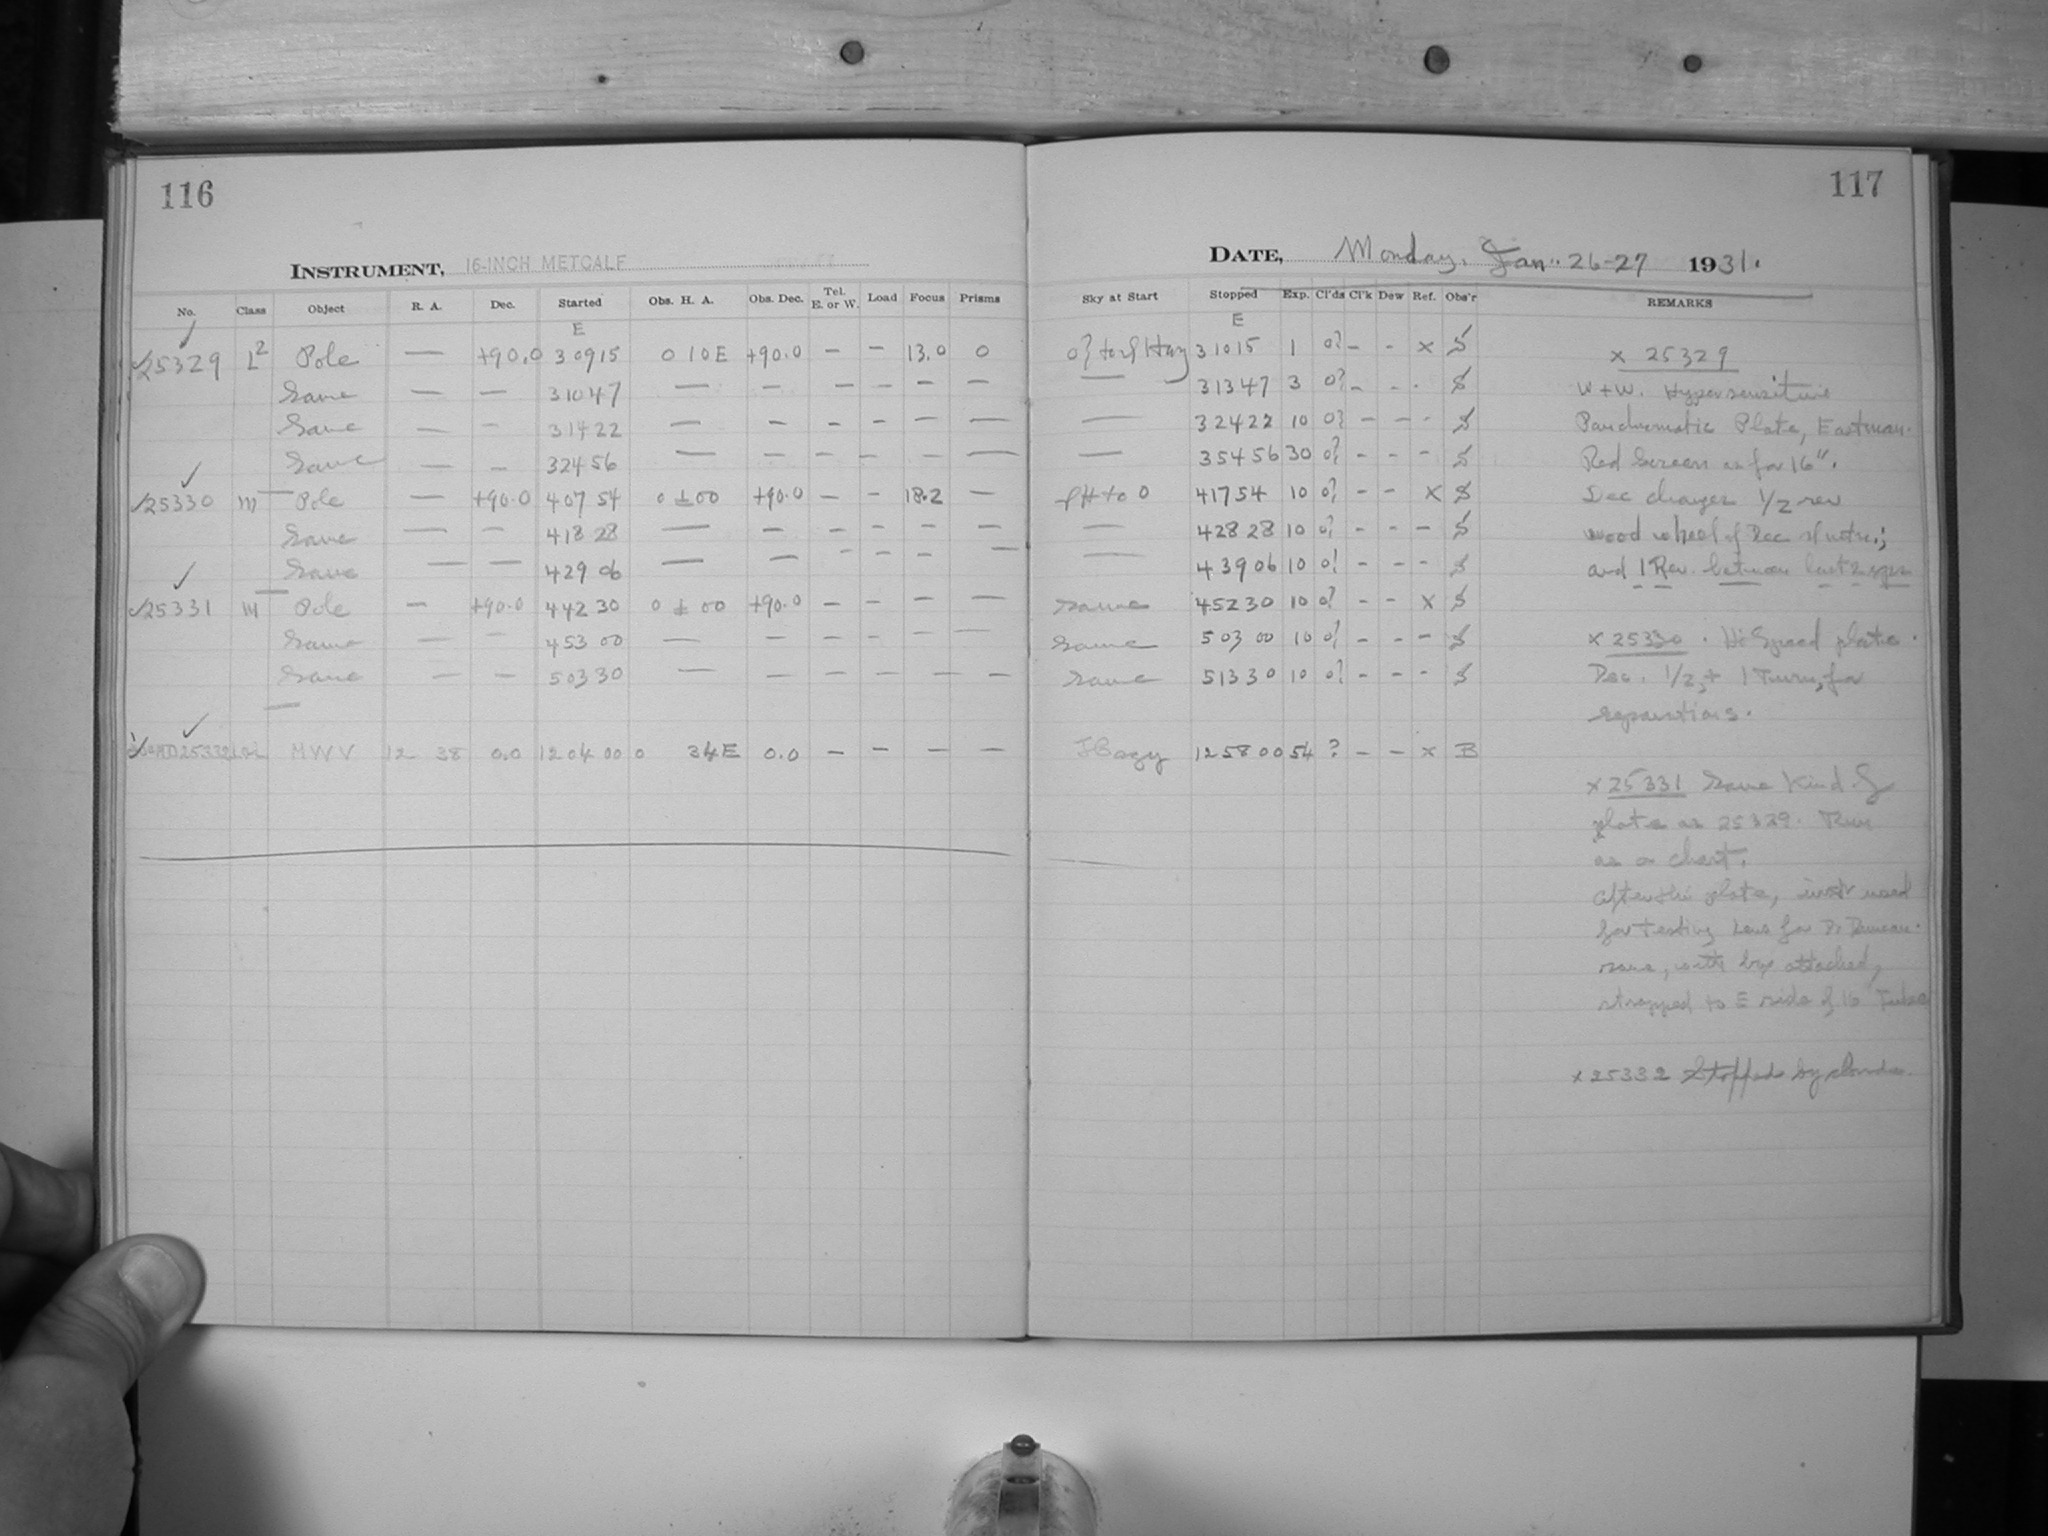 116
INSTRUMENT, 16-INCH METCALF
No. Class Object R. A. Dec. Started Obs. H. A. Obs. Dec. Tel. E. or W. Load Focus Prisms
E
25329 L2 Pole — +90.0 3 09 15 0 10 E +90.0 — — 13.0 0
Same — — 3 10 47 — — — — — —
Same — — 3 14 22 — — — — — —
Same — — 3 24 56 — — — — — —
25330 m Pole — +90.0 4 07 54 0 ±00 +90.0 — — 18.2 —
Same — — 4 18 28 — — — — — —
Same — — 4 29 06 — — — — — —
25331 m Pole — +90.0 4 42 30 0 ±00 +90.0 — — — —
Same — — 4 53 00 — — — — — —
Same — — 5 03 30 — — — — — —
25332 MWV 12 38 0.0 12 04 00 0 34 E 0.0 — — — —
117
DATE, Monday, Jan. 26-27 1931.
Sky at Start Stopped Exp. Cl'ds Cl'k Dew Ref. Obs'r REMARKS
E
3 10 15 1 0? — - x S
— 3 13 47 3 0? — - - S
— 3 24 22 10 0? — — - S
— 3 54 56 30 0? — — - S
4 17 54 10 0? — — x S
— 4 28 28 10 0? — — — S
— 4 39 06 10 0? — — - S
Same 4 52 30 10 0? — — x S
Same 5 03 00 10 0? — — — S
Same 5 13 30 10 0? — — - S
Hazy 12 58 00 54 ? — — x B
x 25329
W + W. Hypersensitive
Panchromatic Plate, Eastman.
Red Screen as for 16".
Dec changes 1/2 rev
wood wheel of Dec
and 1 Rev. between last 2
x 25330. Hi Speed plate.
Dec. 1/2, + 1 Turn, for
separations.
x 25331 Same Kind of
plate as 25329.
as a chart.
After this plate, inst used
for testing Lens for Dr Duncan.
same, with box attached,
strapped to E side of 16 Tube
x 25332 Stopped by clouds.